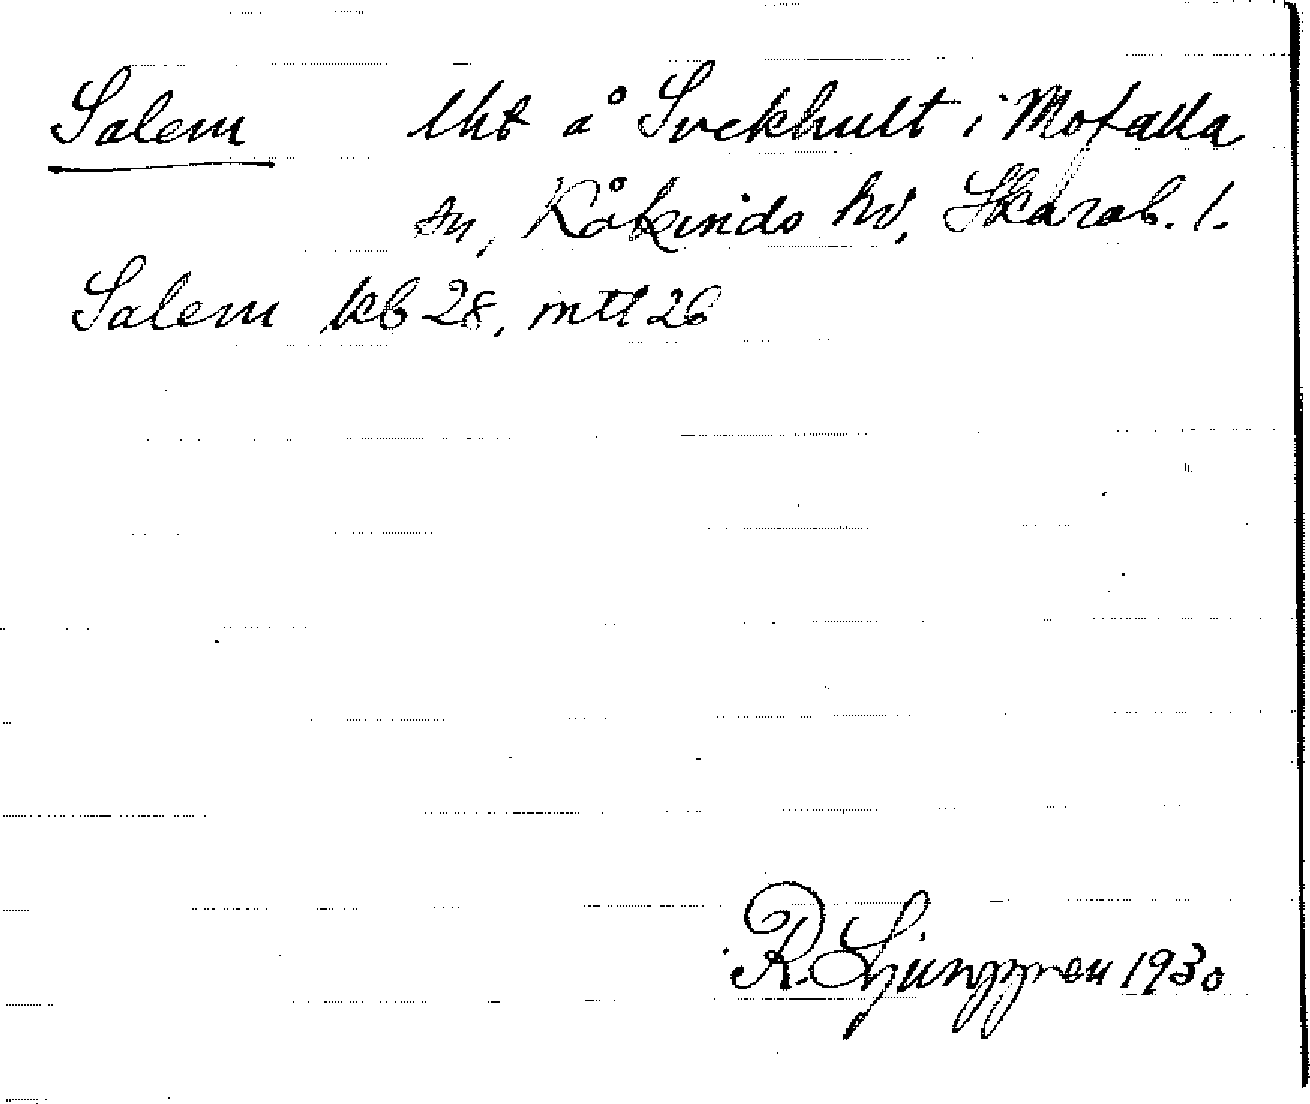 Salem lht å Svekhult i Mofalla
sn, Kåkinds hd, Skarab. l.
Salem kb 28, mtl 26
R. Ljunggren 1930